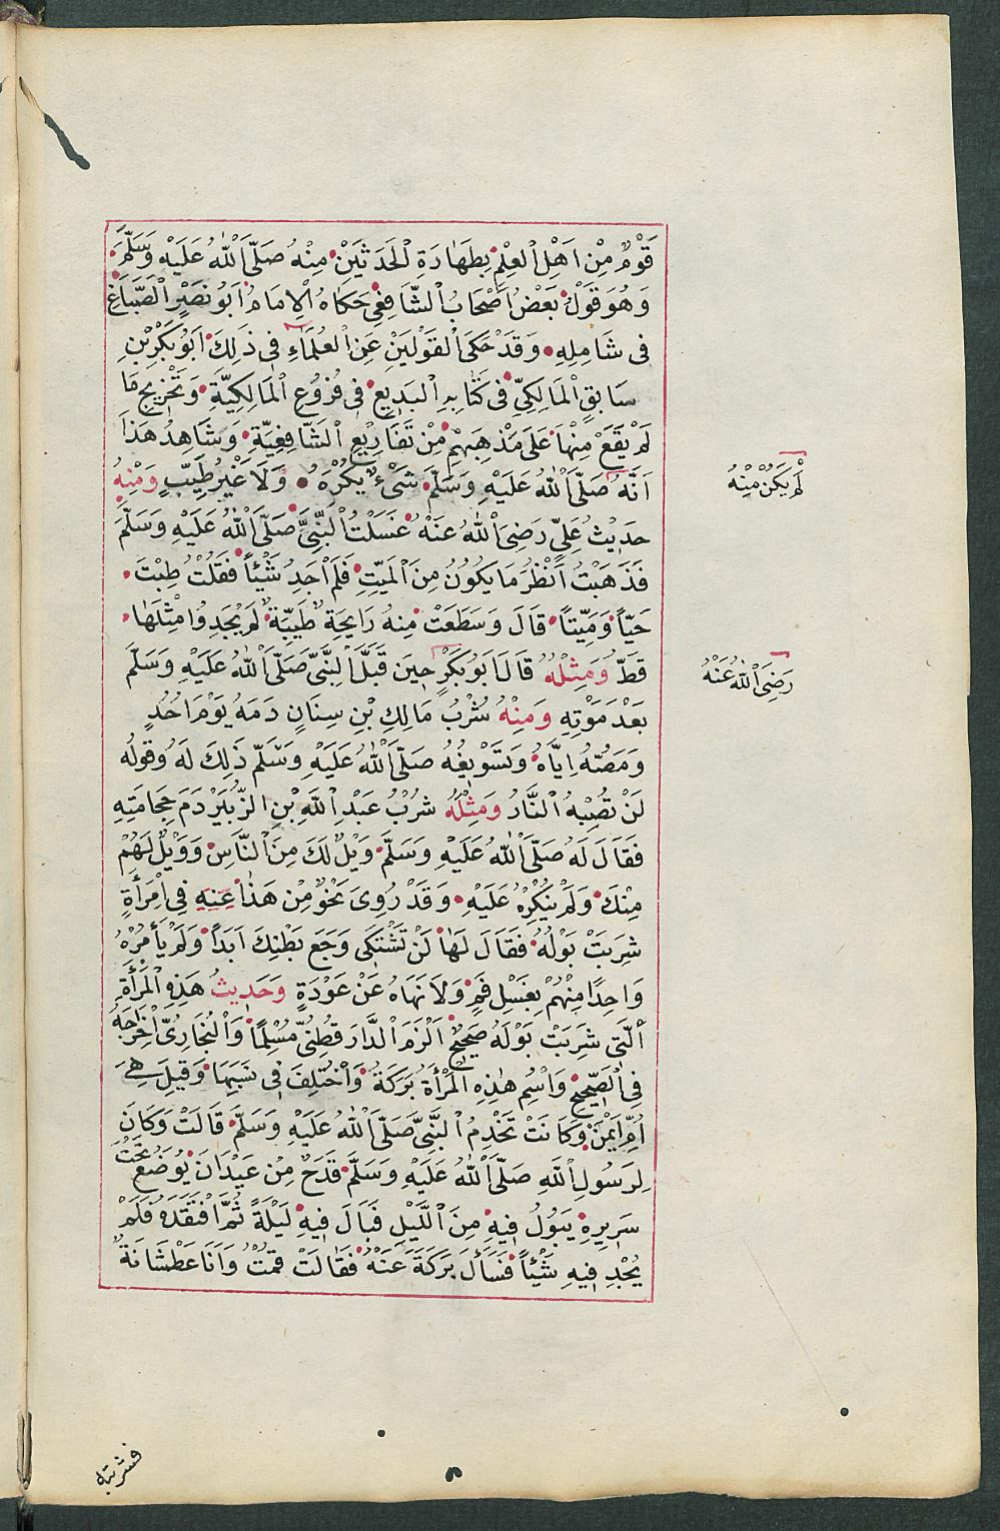 قَوْمٌ مِنْ اَهْلِ الْعِلْمِ بِطَهَارَةِ الْحَدَثَيْنِ مِنْهُ صَلَّى اللّٰهُ عَلَيْهِ وَسَلَّمَ
وَهُوَ قَوْلُ بَعْضُ اَصْحَابُ الشَّافِعِي حَكَاهُ الْاِمَامُ اَبُو نَصْرِ الصَّبَّاغِ
فى شَامِلِهِ وَقَدْ حَكَى الْقَوْلَيْنِ عَنِ الْعُلَمَاءِ فى ذَلِكَ اَبُو بَكْرِ بْنِ
سَابِقٍ الْمَالِكِىّ فى كِتَابِهِ الْبَدِيعِ فى فُرُوعِ الْمَالِكِيَّةِ وَتَخْرِيجِ مَا
لَمْ يَقَعْ مِنْهَا عَلَى مَذْهَبِهِمْ مِنْ تَفَارِيْعِ الشَّافِعِيَّةِ وَشَاهِدُ هَذَا
اَنَّهُ صَلَّى اللّٰهُ عَلَيْهِ وَسَلَّمَ شَىْءٌ يُكْرَهُ وَلَا غَيْرُ طَيِّبٍ وَمِنْهُ
حَدِيثُ عَلِىٍّ رَضِىَ اللّٰهُ عَنْهُ غَسَلْتُ النَّبِىَّ صَلَّى اللّٰهُ عَلَيْهِ وَسَلَّمَ
فَذَهَبْتُ اَنْظُرُ مَا يَكُونُ مِنَ الْمَيِّتِ فَلَمْ اَجِدْ شَيْئاً فَقُلْتُ طِبْتَ
حَيّاً وَمَيِّتاً قَالَ وَسَطَعَتْ مِنْهُ رَايِحَةٌ طَيِّبَةٌ لَمْ يَجِدُوا مِثْلَهَا
قَطّ وَمِثْلُهُ قَالَ اَبُو بَكْرٍ حِينَ قَبَّلَ النَّبِىّ صَلَّى اللّٰهُ عَلَيْهِ وَسَلَّم
بَعْدَ مَوْتِهِ وَمِنْهُ شُرْبُ مَالِكِ بْنِ سِنَانٍ دَمَهُ يَوْمَ اُحُدٍ
وَمَصُّهُ اِيَّاهُ وَتَسْوِيغُهُ صَلَّى اللّٰهُ عَلَيْهِ وَسَلَّمَ ذَلِكَ لَهُ وَقَوْلُه
لَنْ تُصِبْهُ النَّارُ وَمِثْلُهُ شُرْبُ عَبْدِ اللّٰهِ بْنِ الزُّبَيْرِ دَمَ حِجَامَتِهِ
فَقَالَ لَهُ صَلَّى اللّٰهُ عَلَيْهِ وَسَلَّمَ وَيْلٌ لَكَ مِنَ النَّاسِ وَوَيْلٌ لَهُمْ
مِنْكَ وَلَمْ يُنْكِرْهُ عَلَيْهِ وَقَدْ رُوِىَ نَحْوٌ مِنْ هَذَا عَنْهِ فِى اِمْرَأَةٍ
شَرِبَتْ بَوْلَهُ فَقَالَ لَهَا لَنْ تَشْتَكِى وَجَعَ بَطْنِكَ اَبَداً وَلَمْ يَأْمُرْهُ
وَاحِدًا مِنْهُمْ بِغَسْلِ فَمٍ وَلَا نَهَاهُ عَنْ عَوْدَةٍ وَحَدِيثُ هَذِهِ الْمَرْأَةِ
الَّتِى شَرِبَتْ بَوْلَهُ صَحِيحٌ اَلْزَمَ الدَّارَقُطْنِىُّ مُسْلِمًا وَالْبُخَارِىَّ اِخْرَاجَهُ
فِى الصَّحِيحِ وَاسْمِ هٰذِهِ الْمَرْأَةِ بَرَكَةُ وَاخْتُلِفَ فِى نَسَبِهَا وَقِيلَ هِىَ
اُمِّ اَيْمَنَ وَكَانَتْ تَخْدِمُ النَّبِىَّ صَلَّى اللّٰهُ عَلَيْهِ وَسَلَّمَ قَالَتْ وَكَانَ
لِرَسُولِ اللّٰهِ صَلَّى اللّٰهُ عَلَيْهِ وَسَلَّمَ قَدَحٌ مِنْ عَيْدَانَ يُوضَعُ تَحْتَ
سَرِيرِهِ يَبُولُ فِيهِ مِنَ اللَّيْلِ فَبَالَ فِيهِ لَيْلَةً ثُمَّ افْتَقَدَهُ فَلَمْ
يَجِدْ فِيهِ شَيْئاً فَسَأَلَ بَرَكَةَ عَنْهُ فَقَالَتْ قُمْتُ وَاَنَا عَطْشَانَةٌ
لَمْ يَكُنْ مِنْهُ
رَضِىَ اللّٰهُ عَنْهُ
فشربته